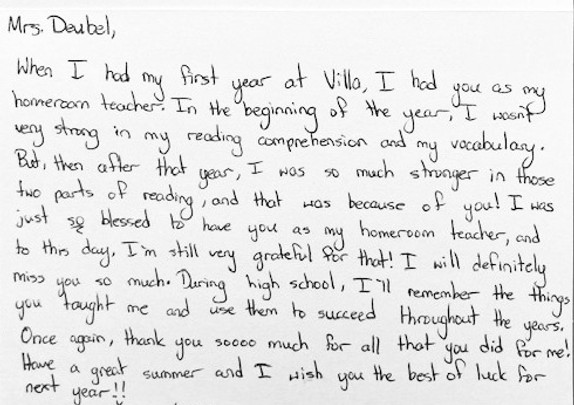 Mrs. Deubel,
When I had my first year at Villa, I had you as my
homeroom teacher. In the beginning of the year, I wasn't
very strong in my reading comprehension and my vocabulary.
But, then after that year, I was so much stronger in those
two parts of reading, and that was because of you! I was
just so blessed to have you as my homeroom teacher, and
to this day, I'm still very grateful for that! I will definitely
miss you so much. During high school, I'll remember the things
you taught me and use them to succeed throughout the years.
Once again, thank you soooo much for all that you did for me!
Have a great summer and I wish you the best of luck for
next year!!